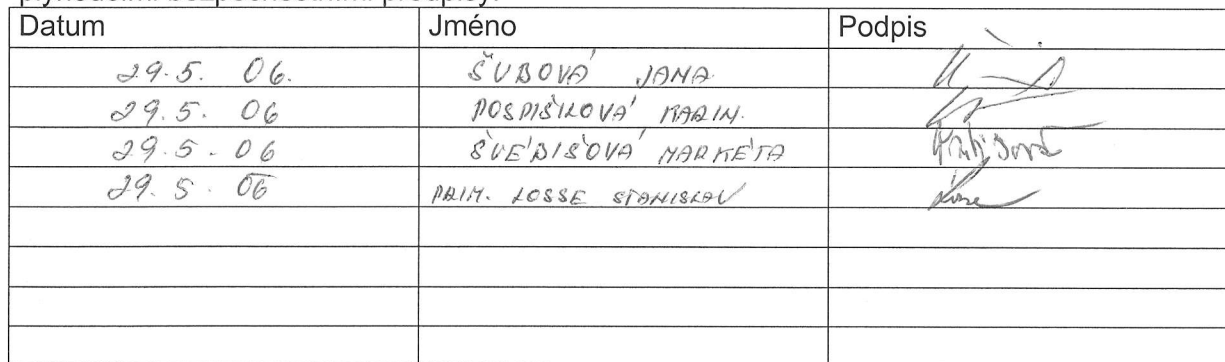 Datum Jméno Podpis
29.5. 06. ŠUBOVÁ JANA
29.5. 06 POSPÍŠILOVÁ KARIN.
29.5.06 ŠVÉDIŠOVÁ MARKÉTA
29.5.06 PRIM. LOSSE STANISLAV